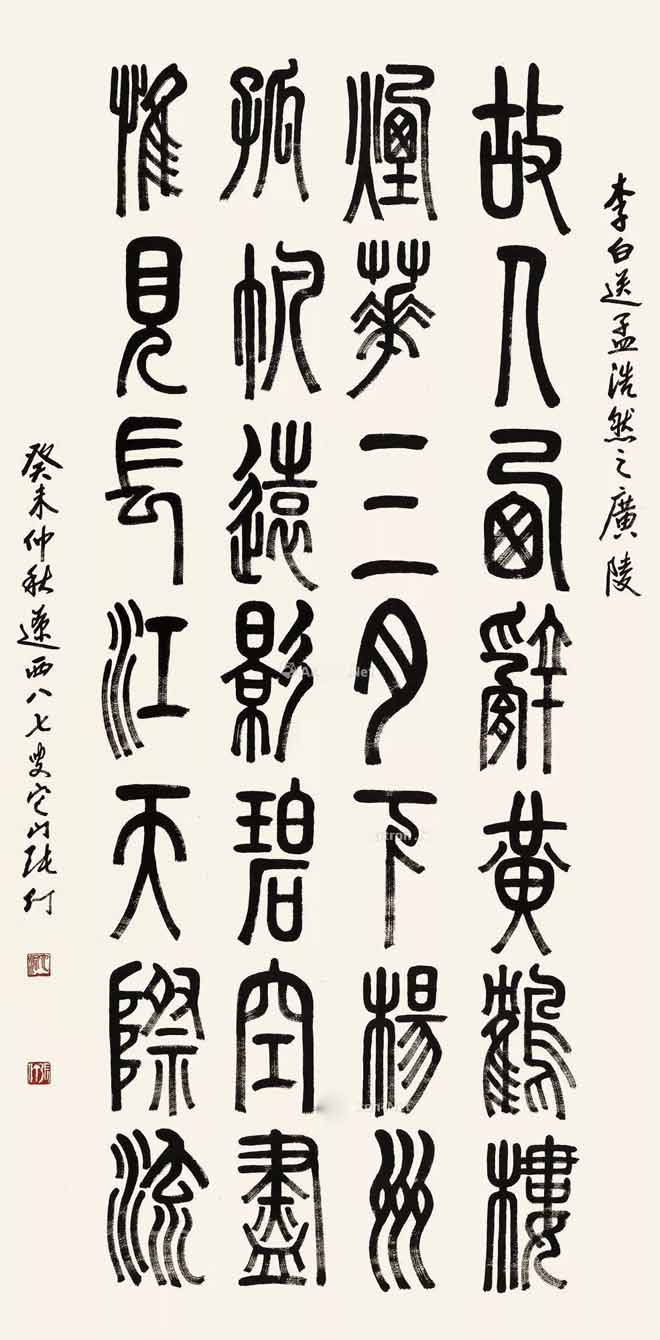 李白送孟浩然之廣陵
故人西辭黃鶴樓
煙華三月下楊州
孤帆遠影碧空盡
惟見長江天際流
癸未仲秋遼西八七叟它山張仃